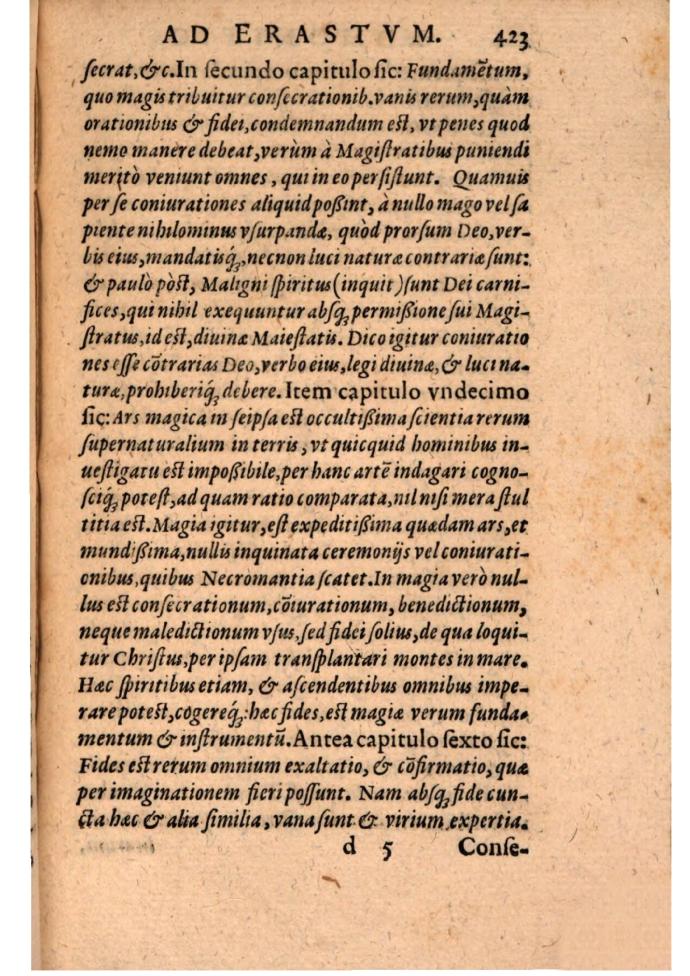 AD ERASTVM. 423
ſecrat, &c. In ſecundo capitulo ſic: Fundamẽtum,
quo magis tribuitur conſecrationib. vanis rerum, quàm
orationibus & fidei, condemnandum eſt, vt penes quod
nemo manere debeat, verùm à Magiſtratibus puniendi
meritò veniunt omnes, qui in eo perſiſtunt. Quamuis
per ſe coniurationes aliquid poßint, à nullo mago vel ſa
piente nihilominus vſurpandæ, quòd prorſum Deo, ver-
bis eius, mandatisq́;, necnon luci naturæ contrariæ ſunt:
& paulò pòſt, Maligni ſpiritus (inquit) ſunt Dei carni-
fices, qui nihil exequuntur absq; permißione ſui Magi-
ſtratus, id eſt, diuinæ Maieſtatis. Dico igitur coniuratio
nes eſſe cõtrarias Deo, verbo eius, legi diuinæ, & luci na-
turæ, prohiberiq́; debere. Item capitulo vndecimo
ſic: Ars magica in ſeipſa eſt occultißima ſcientia rerum
ſupernaturalium in terris, vt quicquid hominibus in-
ueſtigatu eſt impoßibile, per hanc artẽ indagari cogno-
ſciq́; poteſt, ad quam ratio comparata, nil niſi mera ſtul
titia eſt. Magia igitur, eſt expeditißima quædam ars, et
mundißima, nullis inquinata ceremonijs vel coniurati-
onibus, quibus Necromantia ſcatet. In magia verò nul-
lus eſt conſecrationum, cõiurationum, benedictionum,
neque maledictionum vſus, ſed fidei ſolius, de qua loqui-
tur Chriſtus, per ipſam tranſplantari montes in mare.
Hæc ſpiritibus etiam, & aſcendentibus omnibus impe-
rare poteſt, cogereq́;: hæc fides, eſt magiæ verum funda-
mentum & inſtrumentũ. Antea capitulo ſexto ſic:
Fides eſt rerum omnium exaltatio, & cõfirmatio, quæ
per imaginationem fieri poſſunt. Nam absq; fide cun-
cta hæc & alia ſimilia, vana ſunt & virium expertia.
d 5 Conſe-